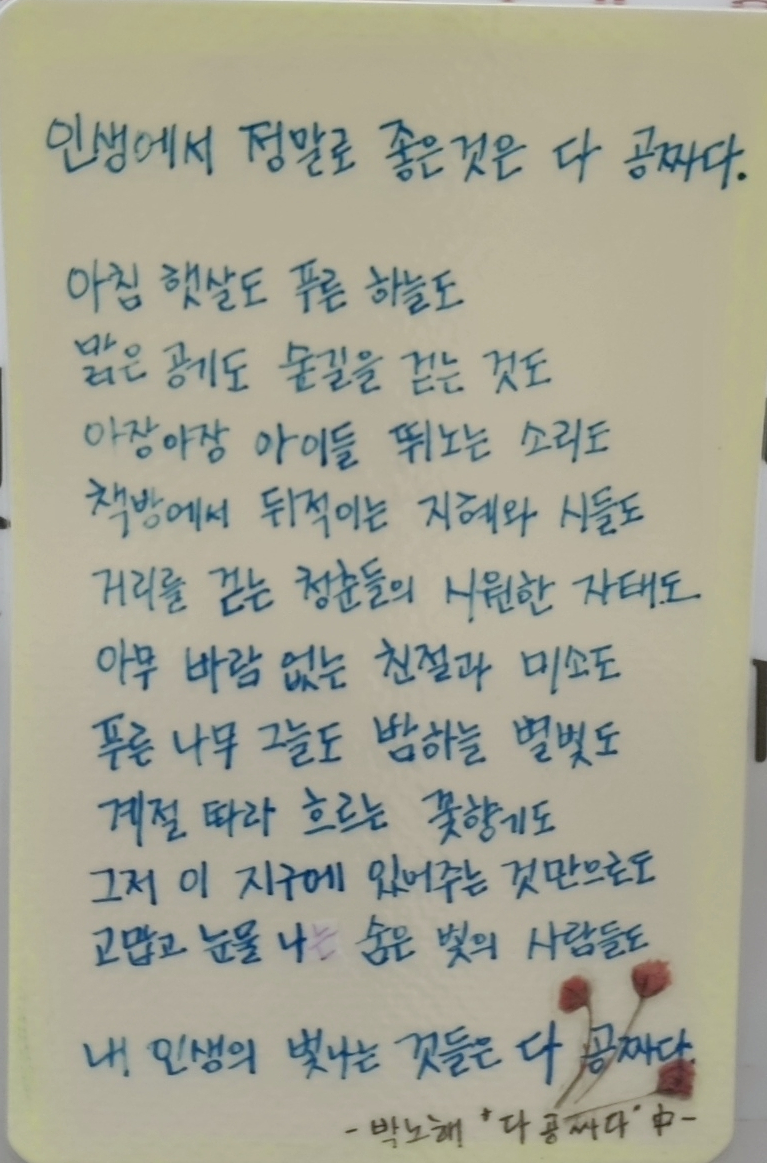 인생에서 정말로 좋은것은 다 공짜다.
아침 햇살도 푸른 하늘도
맑은 공기도 숲길을 걷는 것도
아장아장 아이들 뛰노는 소리도
책방에서 뒤적이는 지혜와 시들도
거리를 걷는 청춘들의 시원한 자태도
아무 바람 없는 친절과 미소도
푸른 나무 그늘도 밤하늘 별빛도
계절 따라 흐르는 꽃향기도
그저 이 지구에 있어주는 것만으로도
고맙고 눈물 나는 숨은 빛의 사람들도
내 인생의 빛나는 것들은 다 공짜다.
-박노해 '다 공짜다' 中-